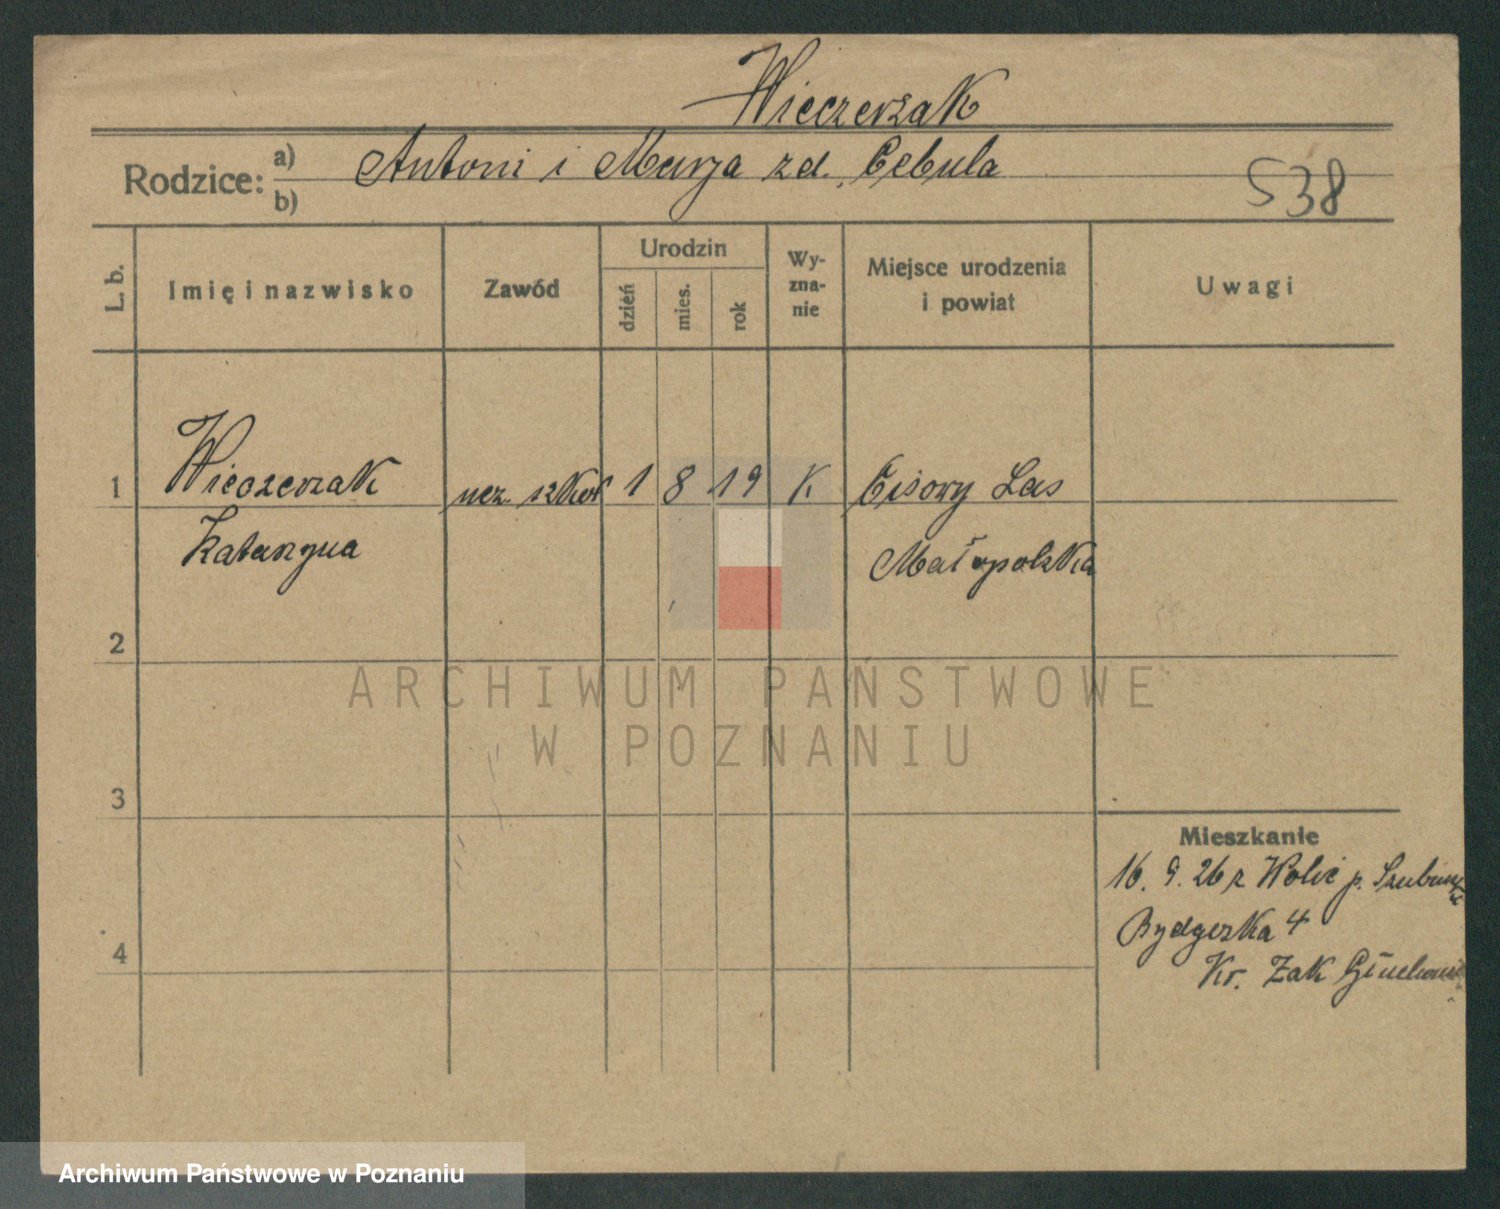 Wieczerzak
Rodzice: a) Antoni i Marja zd. Cebula
b)
538
L. b.
Imię i nazwisko
Zawód
Urodzin
dzień
mies.
rok
Wy-
zna-
nie
Miejsce urodzenia
i powiat
Uwagi
1 Wieczerzak ucz. szkoł 1 8 19 K Cisowy Las
Katarzyna Małopolska
2
ARCHIWUM PAŃSTWOWE
W POZNANIU
3
Mieszkanie
16. 9. 26 z Wolic p. Szubin
4
Bydgoska 4
Kr. Zak
Archiwum Państwowe w Poznaniu